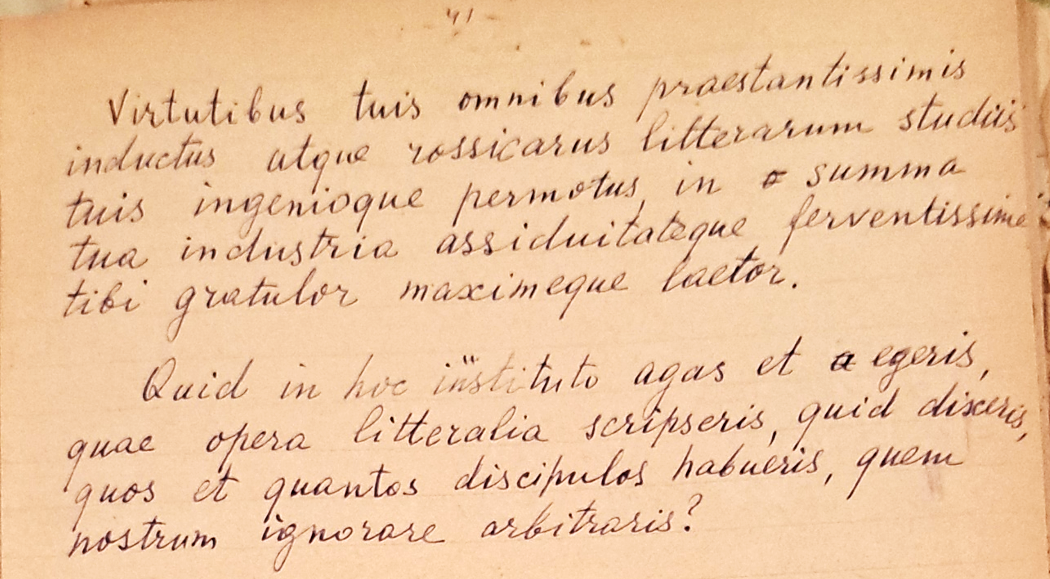 41
Virtutibus tuis omnibus praestantissimis
inductus atque rossicarus litterarum studiis
tuis ingenioque permotus, in summa
tua industria assiduitateque ferventissime
tibi gratulor maximeque laetor.
Quid in hoc instituto agas et egeris,
quae opera litteralia scripseris, quid dixeris,
quos et quantos discipulos habueris, quem
nostrum ignorare arbitraris?